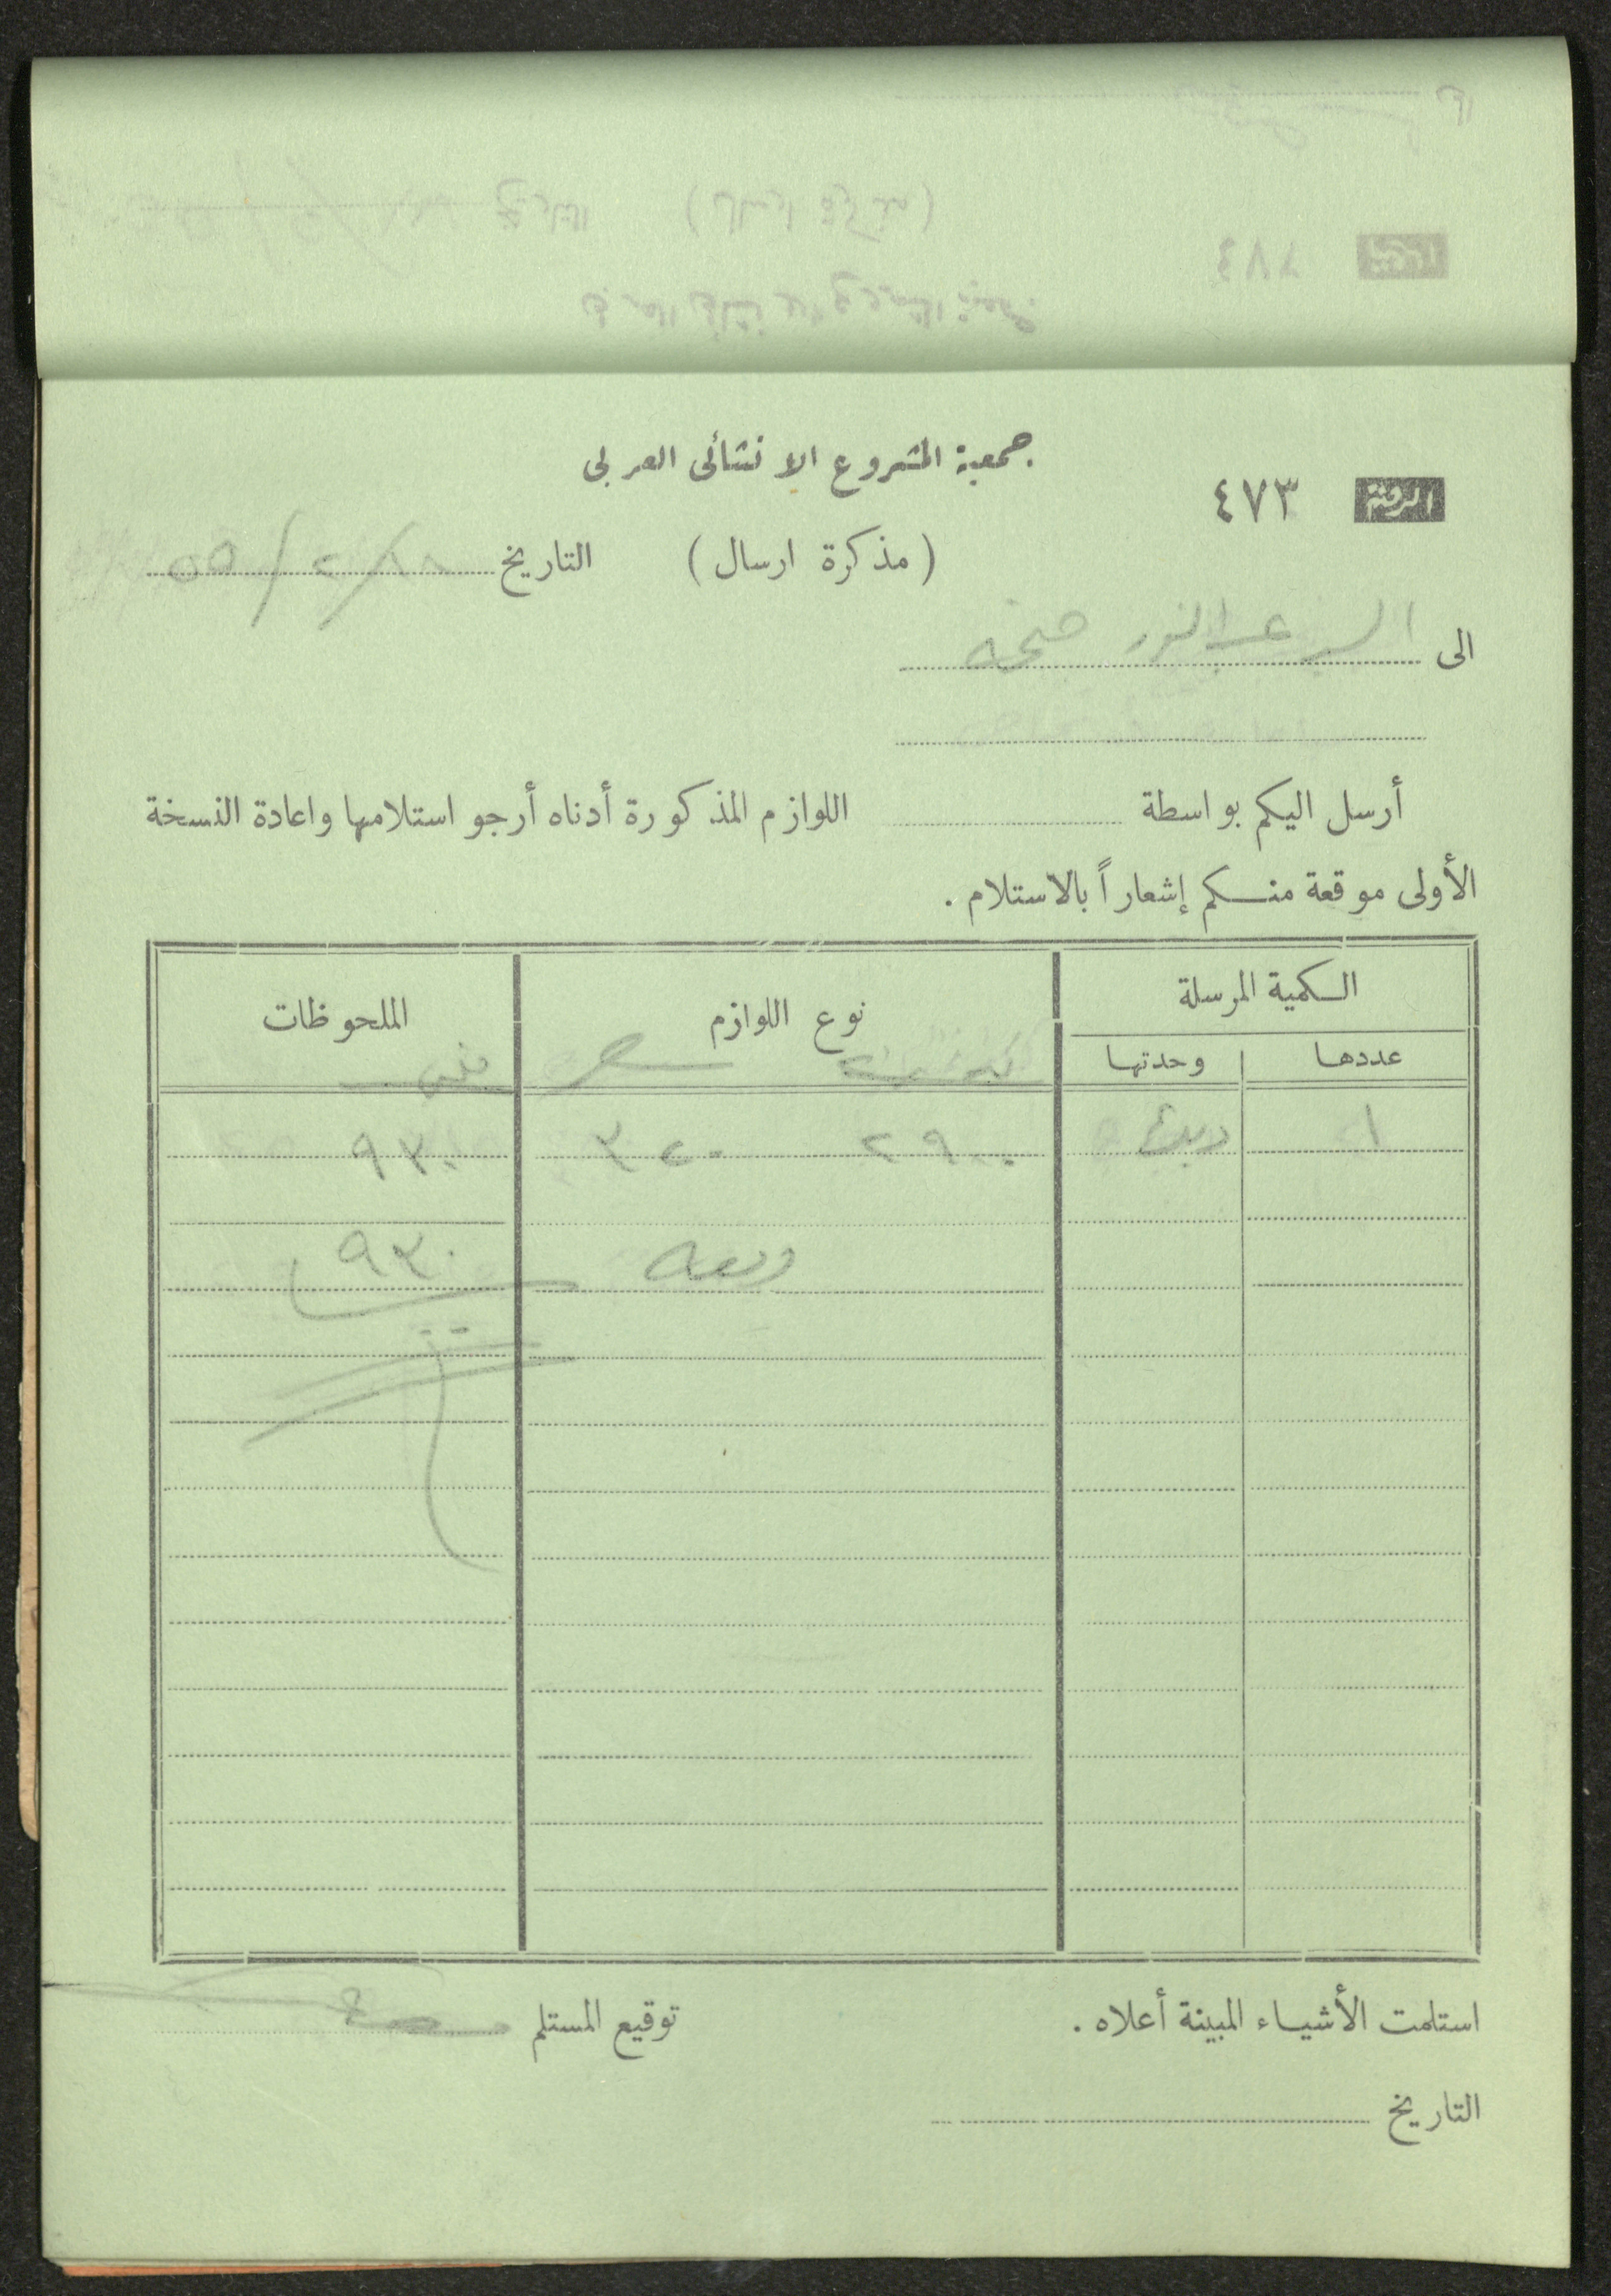 جمعية المشروع الانشائى العربى
الرقم ٤٧٣
(مذكرة ارسال) التاريخ ٥٥/٢/٢٨
الى السيد عبد النور
أرسل اليكم بواسطة اللوازم المذكورة أدناه أرجو استلامها واعادة النسخة
الأولى موقعة منكم إشعاراً بالاستلام .
الكمية المرسلة نوع اللوازم الملحوظات
عددها وحدتها
سعر فلس
١ ٢٩٠٠ ٣٢٠ ٩٣٠
٩٣٠
استلمت الأشياء المبينة أعلاه . توقيع المستلم
التاريخ